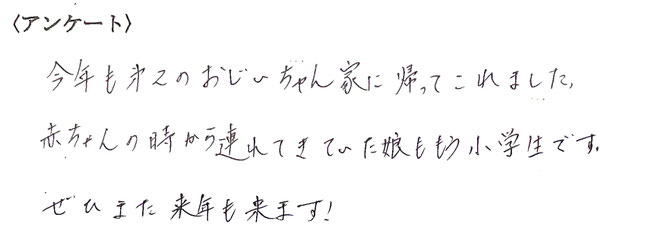 〈アンケート〉
今年も第2のおじいちゃん家に帰ってこれました。
赤ちゃんの時から連れてきていた娘ももう小学生です。
ぜひまた来年も来ます!